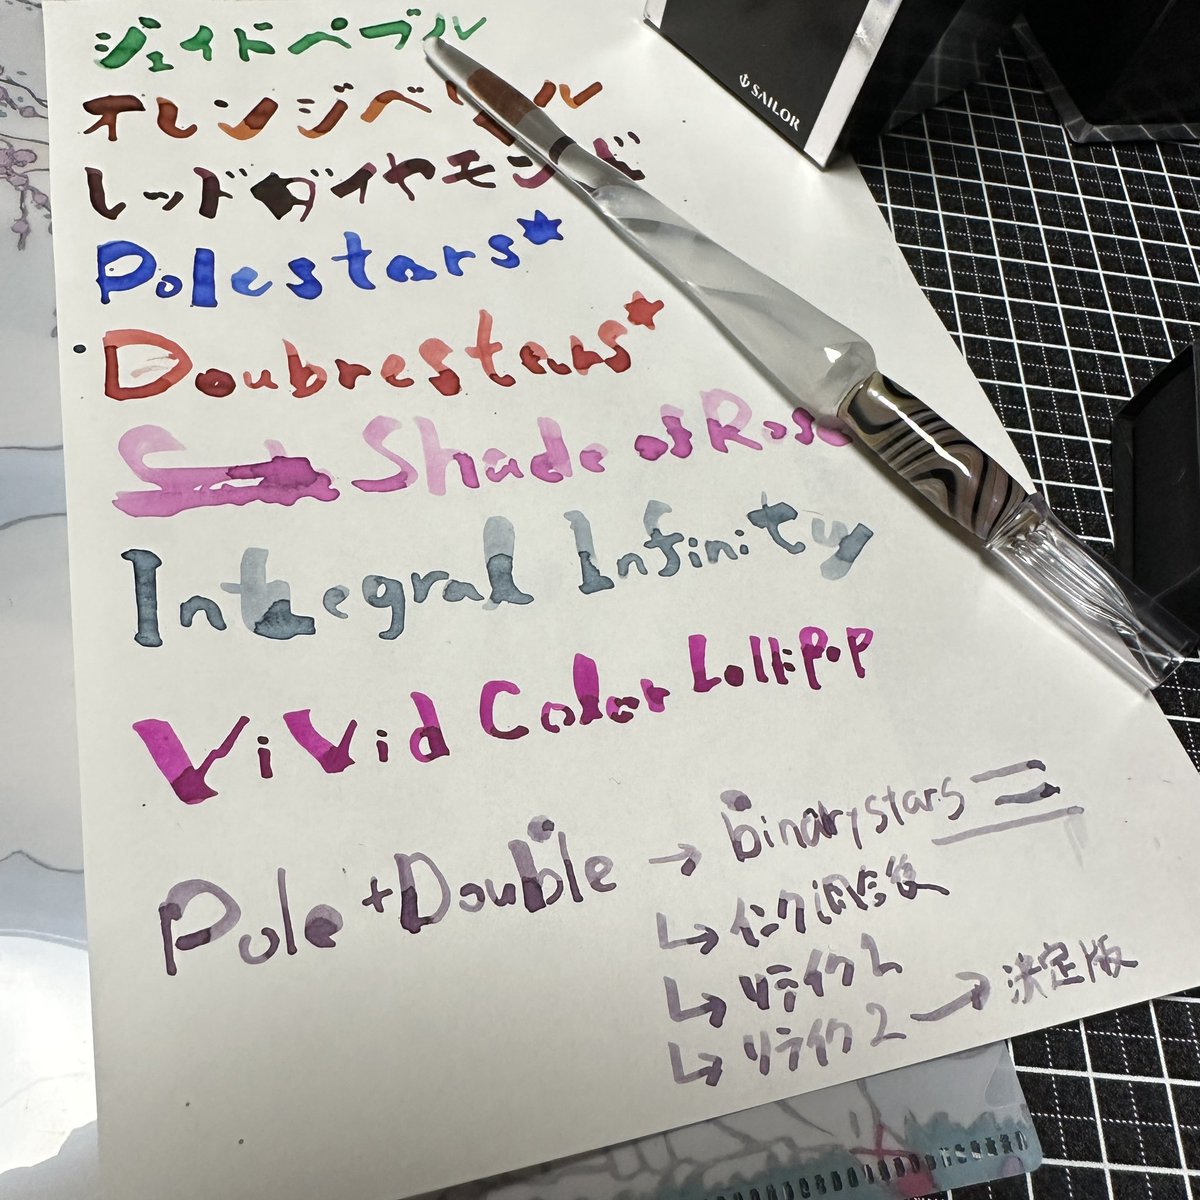 ジェイドペブル
SAILOR
オレンジベリル
レッドダイヤモンド
Polestars★
Doubrestars★
Shade of Rose
Integral Infinity
ViVid Color LolliPoP
Pole + Double → binarystars
↳ インク調合後
↳ リテイク1
↳ リテイク2 → 決定版